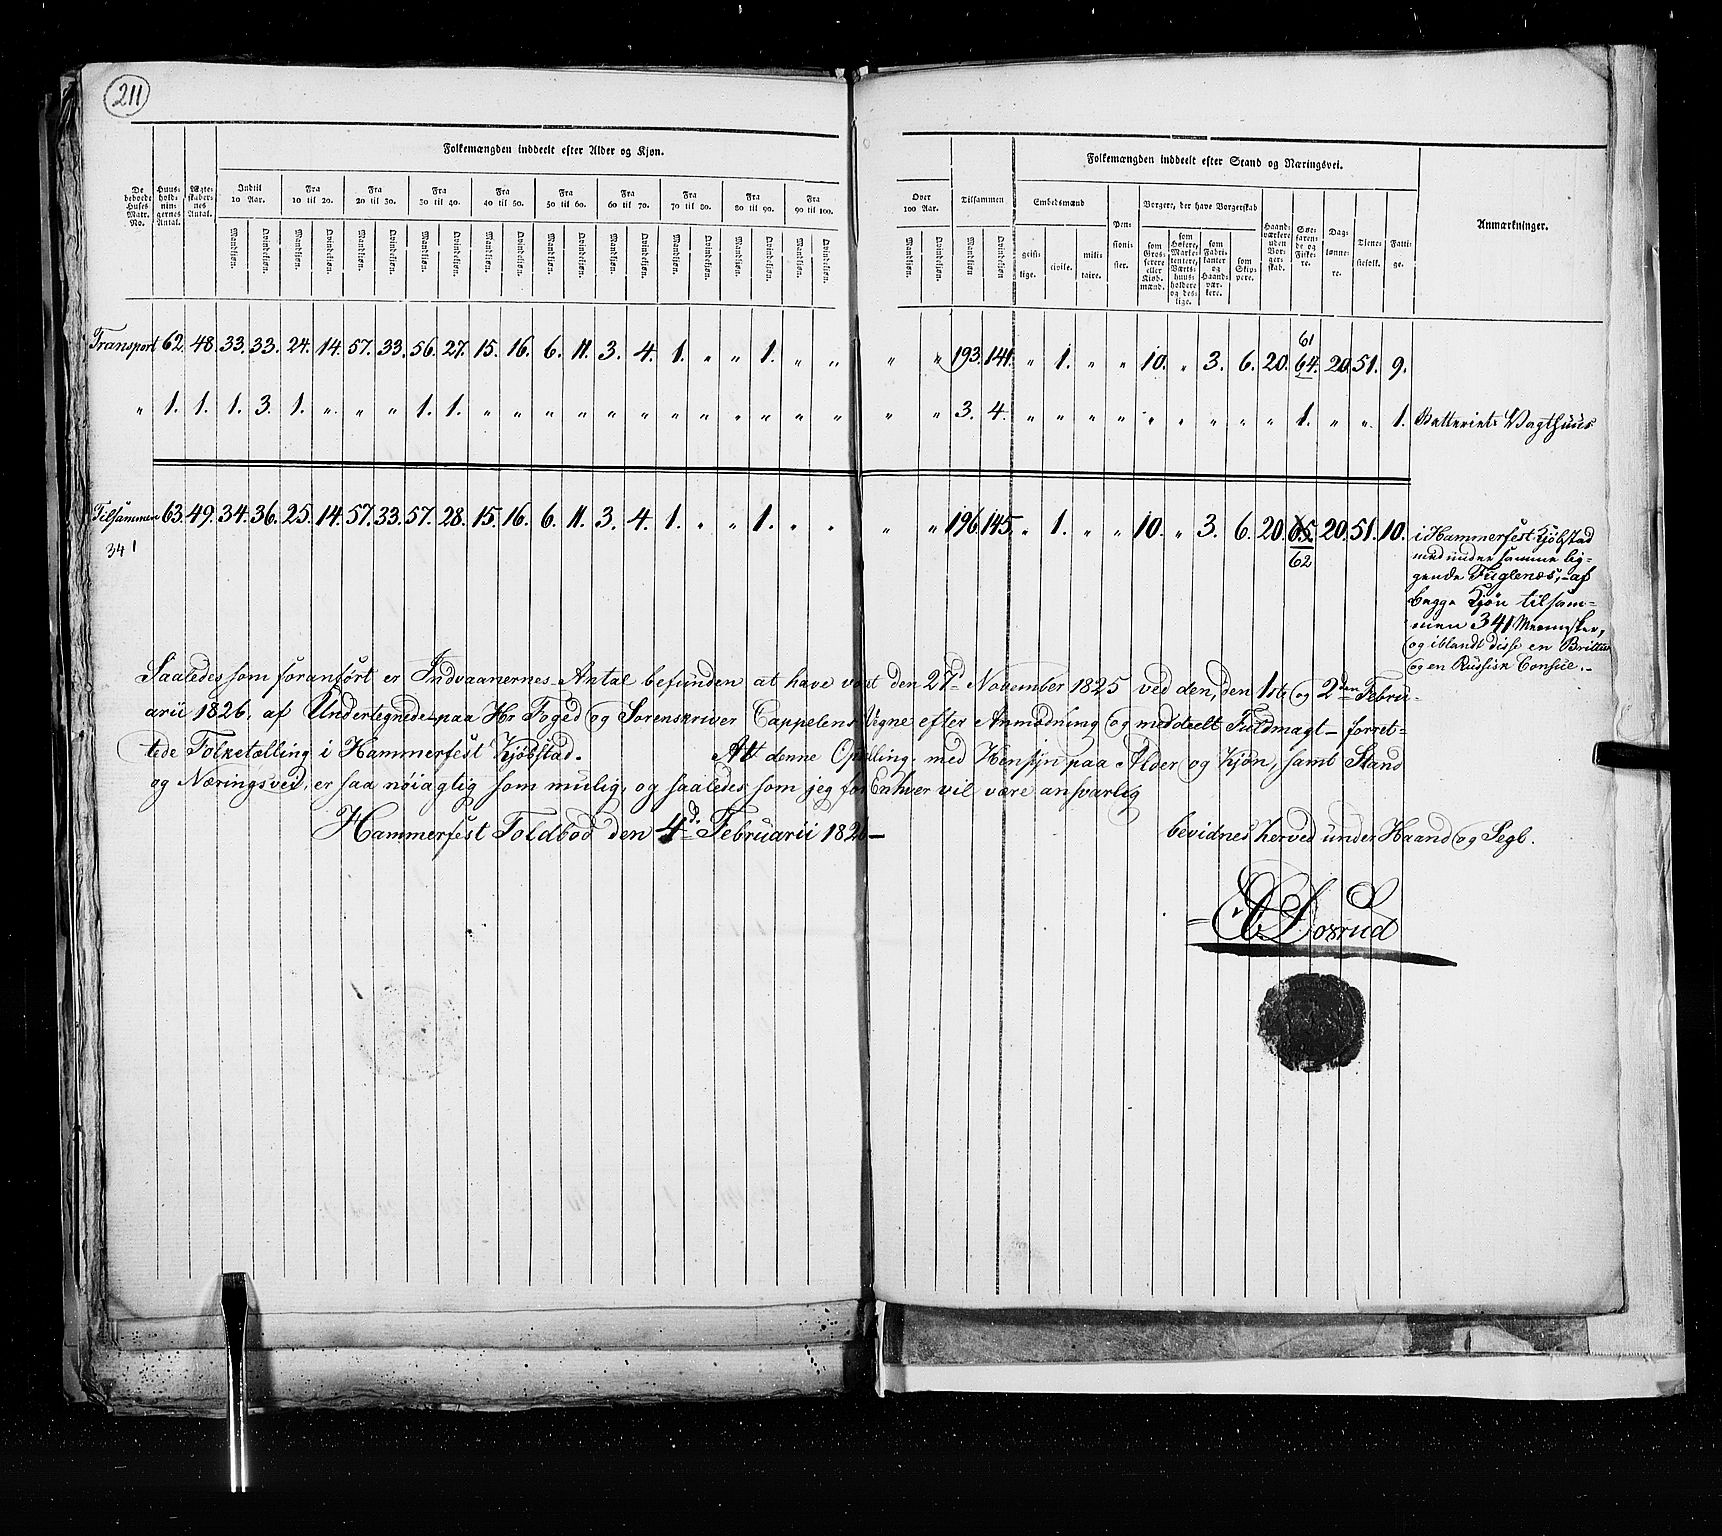 211
Folkemængden inddeelt efter Alder og Kjøn.
Folkemængden inddeelt efter Stand og Næringsvei.
De beboede Huses Matr. No.
Huus-hold-nin-gernes Antal.
Ægte-skaber-nes Antal.
Indtil 10 Aar.
Fra 10 til 20.
Fra 20 til 30.
Fra 30 til 40.
Fra 40 til 50.
Fra 50 til 60.
Fra 60 til 70.
Fra 70 til 80.
Fra 80 til 90.
Fra 90 til 100.
Over 100 Aar.
Tilsammen
Mandkiøn. Qvindekiøn. Mandkiøn. Qvindekiøn. Mandkiøn. Qvindekiøn. Mandkiøn. Qvindekiøn. Mandkiøn. Qvindekiøn. Mandkiøn. Qvindekiøn. Mandkiøn. Qvindekiøn. Mandkiøn. Qvindekiøn. Mandkiøn. Qvindekiøn. Mandkiøn. Qvindekiøn. Mandkiøn. Qvindekiøn. Mandkiøn. Qvindekiøn.
Embedsmænd
geist-lige.
civile.
mili-taire.
Pen-sioni-ster.
Borgere, der have Borgerskab
som Gros-serere eller Kiøb-mænd.
som Høkere, Marke-tentere, Værts-huus-holdere og des-lige.
som Fabri-kanter og Haand-vær-kere.
som Skip-pere.
Haand-værkere uden Bor-ger-skab.
Søe-faren-de og Fiske-re.
Dag-lønne-re.
Tiene-stefolk.
Fatti-ge.
Anmærkninger.
61
Transport 62. 48. 33. 33. 24. 14. 57. 33. 56. 27. 15. 16. 6. 11. 3. 4. 1. " " 1. " " " " 193. 141. " 1. " " 10. " 3. 6. 20. 64. 20. 51. 9.
" 1. 1. 1. 3. 1. " " " 1. 1. " " " " " " " " " " " " " " 3. 4. " " " " " " " " " 1. " " 1. Batteriets Vagthuus
Tilsammen 63. 49. 34. 36. 25. 14. 57. 33. 57. 28. 15. 16. 6. 11. 3. 4. 1. " " 1. " " " " 196. 145. " 1. " " 10. " 3. 6. 20. 65. 20. 51. 10.
341
62
i Hammerfest Kjøbstad
med under samme lig-
gende Fuglenæs, - af
begge Kjøn tilsam-
men 341 Mennisker,
og iblandt disse en Brittisk
og en Russisk Consul. -
Saaledes som foranført er Indvaanernes Antal befunden at have vært den 27d November 1825 ved den, den 1ste og 2den Febru-
arii 1826. af Undertegnede paa Hr Foged og Sorenskriver Cappelens Vegne efter Anmodning og meddeelt Fuldmagt - forret-
tede Folketælling i Hammerfest Kjøbstad. At denne Optælling, med Hensyn paa Alder og Kjøn, samt Stand
og Næringsvei, er saa nøiagtig som mulig, og saaledes som jeg for Enhver vil være ansvarlig
bevidnes herved under Haand og Segl.
Hammerfest Toldbod den 4d Februarii 1826 -